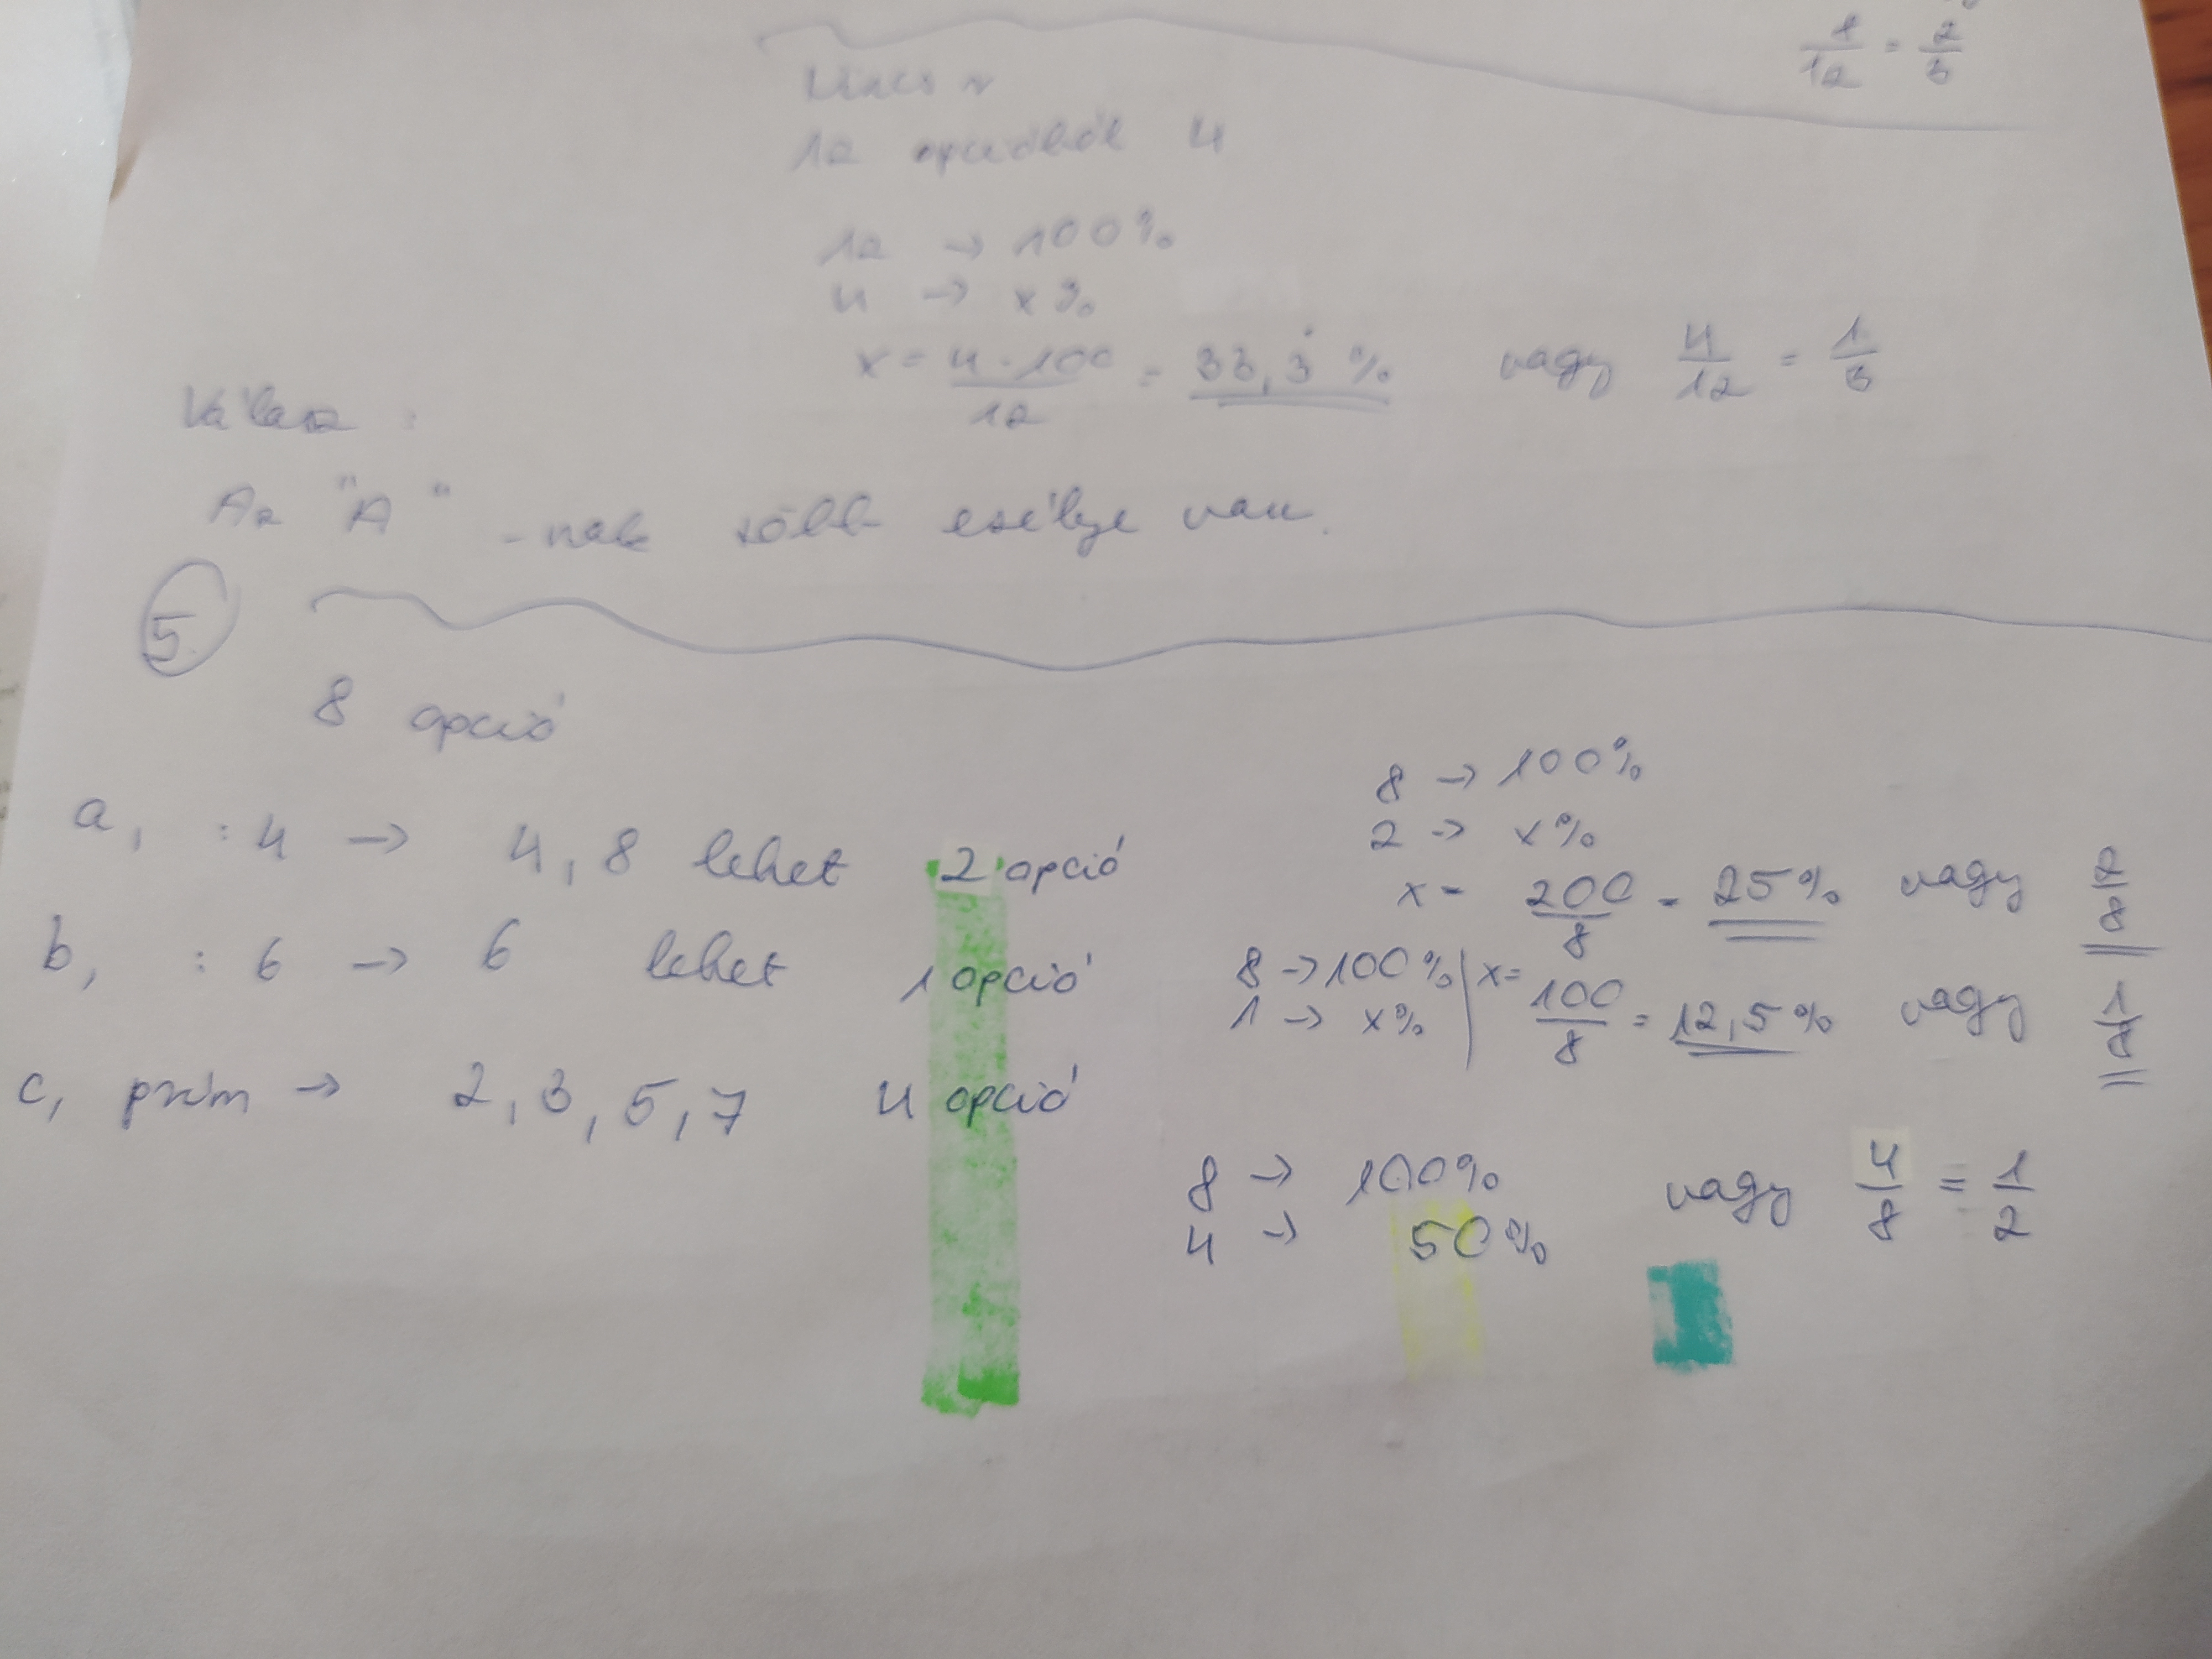 8/12 = 2/3
Nincs r
12 opcióból 4
12 → 100%
4 → x%
x = 4 · 100/12 = 33,3̇ % vagy 4/12 = 1/3
Válasz :
Az "A" -nak több esélye van.
5.
8 opció
8 → 100%
2 → x%
a, : 4 → 4, 8 lehet 2 opció
x = 200/8 = 25% vagy 2/8
b, : 6 → 6 lehet 1 opció
8 → 100% | x = 100/8 = 12,5% vagy 1/8
1 → x%
c, prím → 2, 3, 5, 7 4 opció
8 → 100% vagy 4/8 = 1/2
4 → 50%